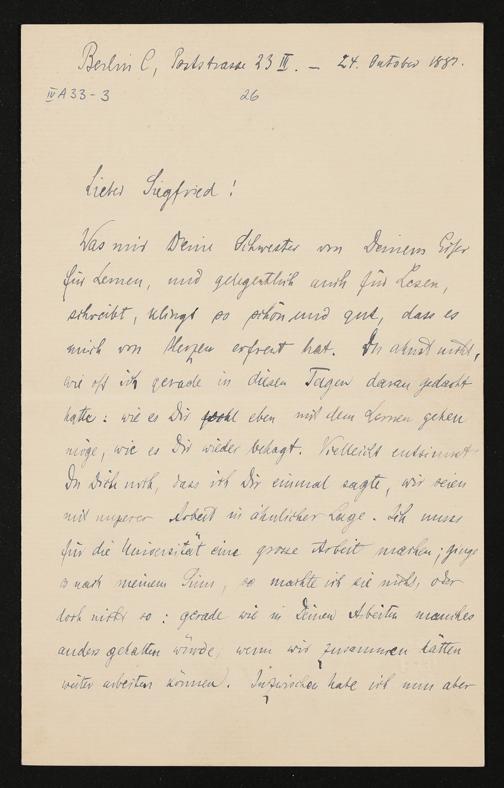 Berlin C, Poststrasse 23 IV. — 24. October 188.
IV A 33-3
26
Lieber Siegfried!
Was mir Deine Schwester von Deinem Eifer
für Lernen, und gelegentlich auch für Lesen,
schreibt, klingt so schön und gut, dass es
mich von Herzen erfreut hat. Du ahnst nicht,
wie oft ich gerade in diesen Tagen daran gedacht
hatte: wie es Dir eben mit dem Lernen gehen
möge, wie es Dir wieder behagt. Vielleicht entsinnst
Du Dich noch, dass ich Dir einmal sagte, wir seien
mit unserer Arbeit in ähnlicher Lage. Ich muss
für die Universität eine grosse Arbeit machen; ginge
es nach meinem Sinn, so machte ich sie nicht, oder
doch nicht so: gerade wie in Deinen Arbeiten manches
anders gehalten würde, wenn wir zusammen hätten
weiter arbeiten können. Inzwischen habe ich nun aber